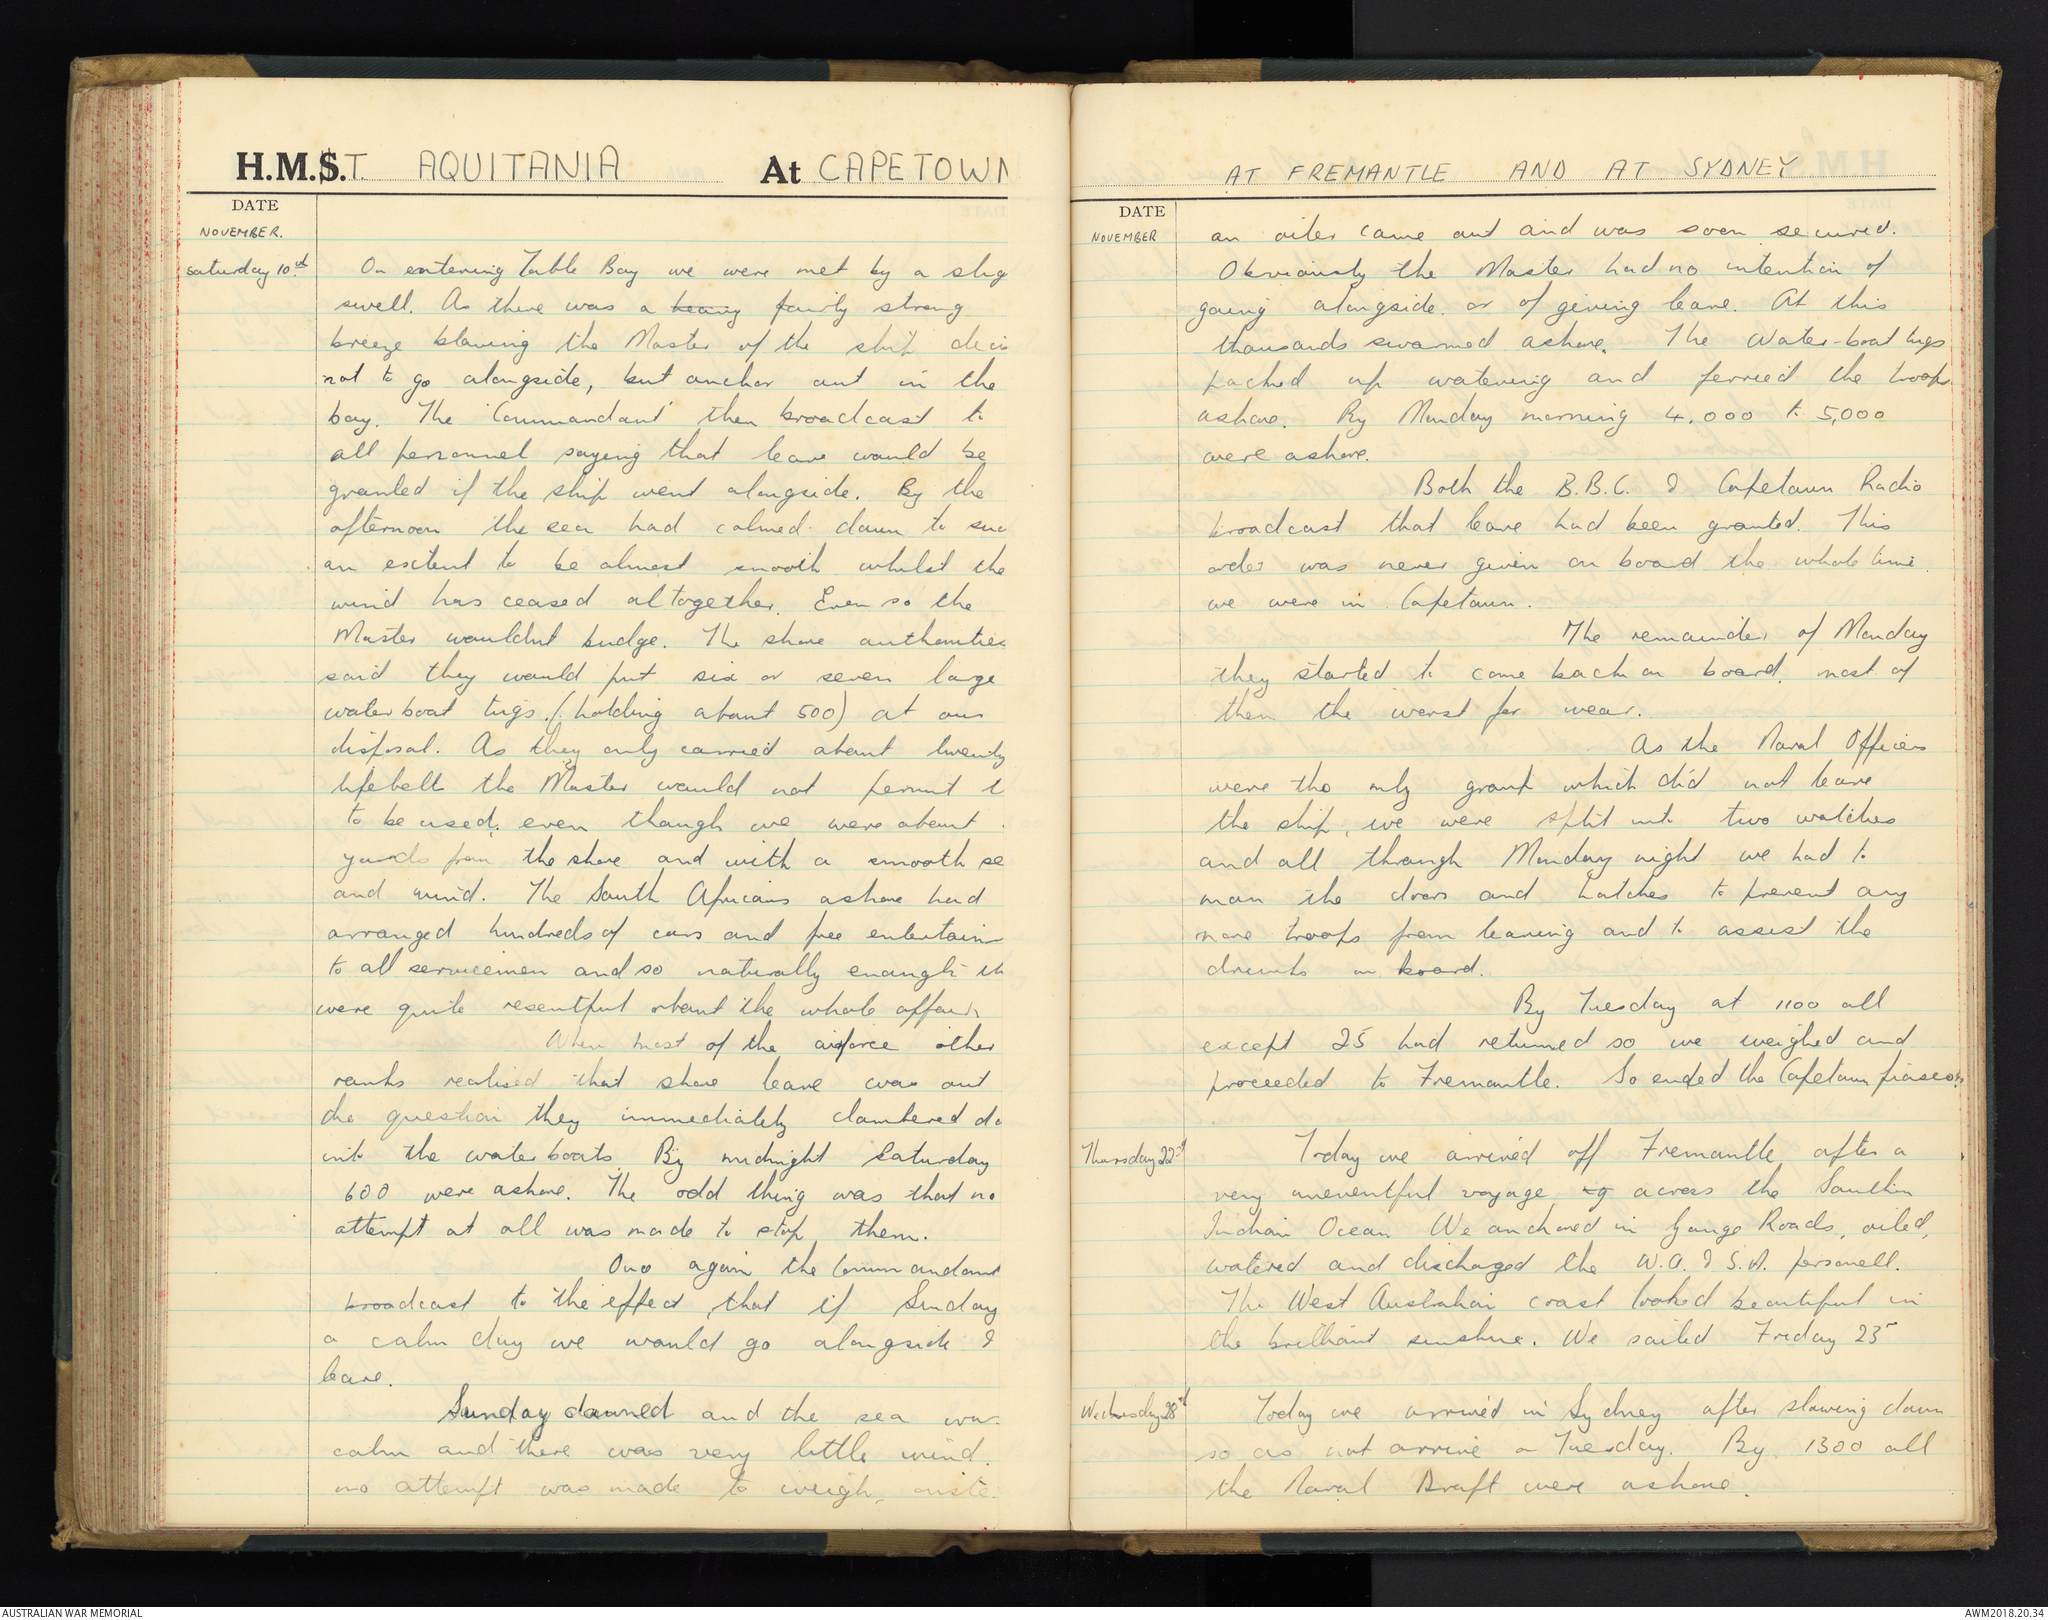 H.M.S.T. AQUITANIA At CAPETOWN
DATE
NOVEMBER.
Saturday 10th On entering Table Bay we were met by a slig
swell. As there was a heavy fairly strong
breeze blowing the Master of the ship deci
not to go alongside, but anchor out in the
bay. The 'Commandant' then broadcast to
all personnel saying that leave would be
granted if the ship went alongside. By the
afternoon the sea had calmed down to suc
an extent to be almost smooth whilst the
wind has ceased altogether. Even so the
Master wouldnt budge. The shore authorities
said they would put six or seven large
water boat tugs (holding about 500) at our
disposal. As they only carried about twenty
lifebelts the Master would not permit t
to be used, even though we were about
yards from the shore and with a smooth se
and wind. The South Africans ashore had
arranged hundreds of cars and free entertainm
to all servicemen and so naturally enough th
were quite resentful about the whole affair.
When most of the airforce other
ranks realised that shore leave was out
the question they immediately clambered do
into the water boats. By midnight Saturday
600 were ashore. The odd thing was that no
attempt at all was made to stop them.
Once again the Commandant
broadcast to the effect that if Sunday
a calm day we would go alongside &
leave.
Sunday dawned and the sea wa
calm and there was very little wind.
no attempt was made to weigh,
AT FREMANTLE AND AT SYDNEY
DATE
NOVEMBER an oiler came out and was soon secured.
Obviously the Master had no intention of
going alongside or of giving leave. At this
thousands swarmed ashore. The Water-boat tugs
packed up watering and ferried the troops
ashore. By Monday morning 4,000 to 5,000
were ashore.
Both the B.B.C. & Capetown Radio
broadcast that leave had been granted. This
order was never given on board the whole time
we were in Capetown.
The remainder of Monday
they started to come back on board, most of
them the worst for wear.
As the Naval Officers
were the only group which did not leave
the ship, we were split into two watches
and all through Monday night we had to
man the doors and hatches to prevent any
more troops from leaving and to assist the
drunks on board.
By Tuesday at 1100 all
except 25 had returned so we weighed and
proceeded to Fremantle. So ended the Capetown fiasco.
Thursday 22nd Today we arrived off Fremantle after a
very uneventful voyage across the Southern
Indian Ocean. We anchored in Gange Roads, oiled,
watered and discharged the W.A. & S.A. personell.
The West Australian coast looked beautiful in
the brilliant sunshine. We sailed Friday 23rd
Wednesday 28th Today we arrived in Sydney after slowing down
so as not arrive on Tuesday. By 1300 all
the Naval Draft were ashore.
AUSTRALIAN WAR MEMORIAL
AWM2018.20.34